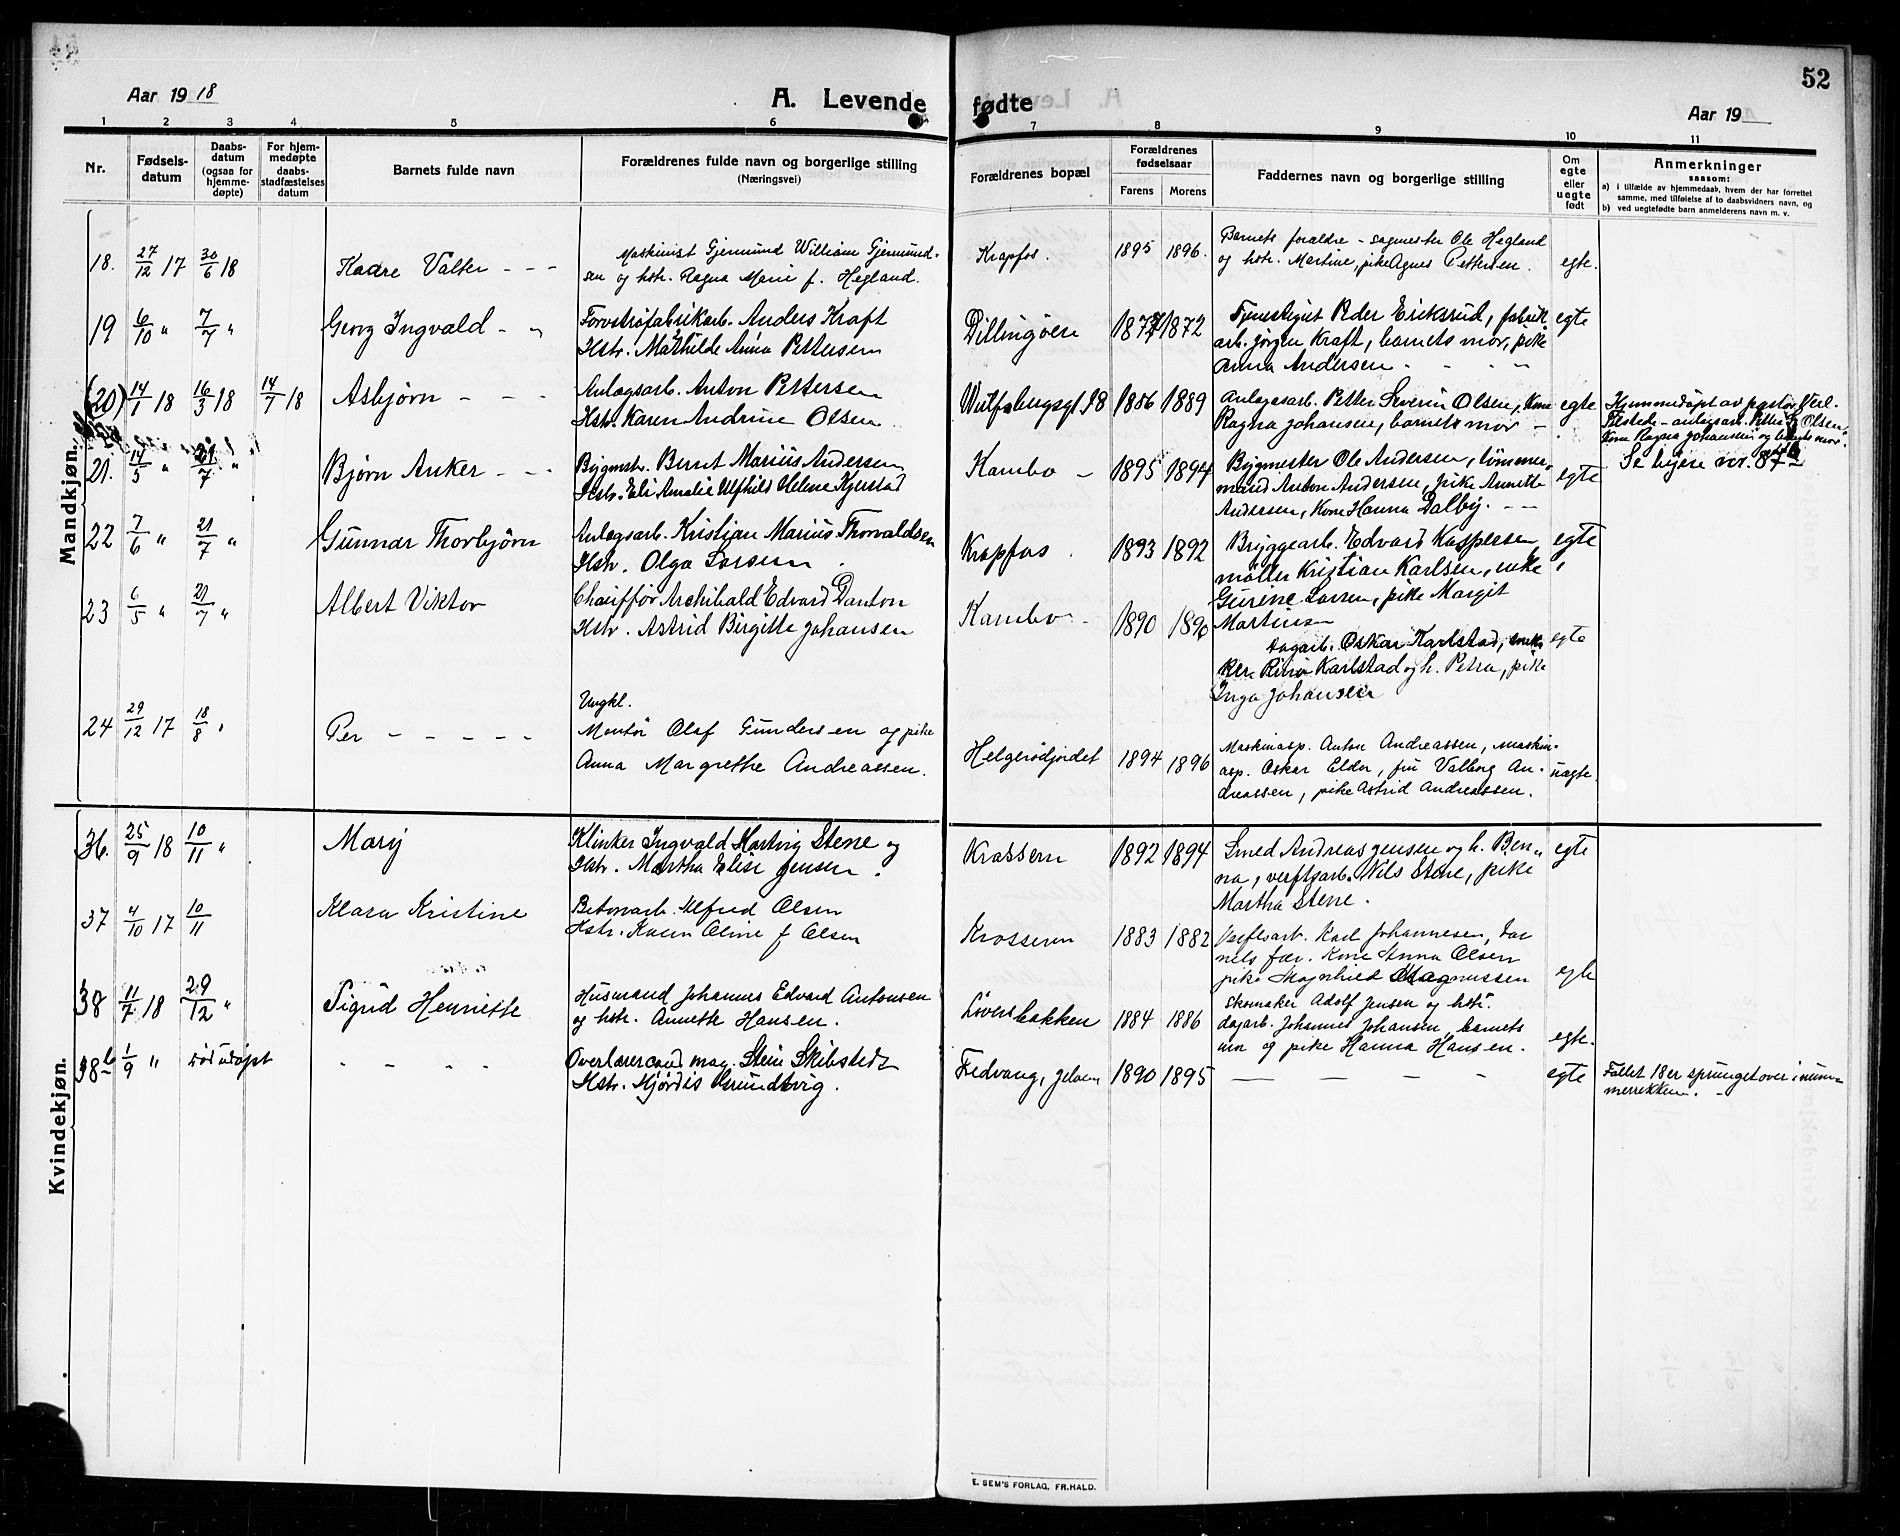 52
Aar 1918
A. Levende fødte
Aar 19
1 2 3 4 5 6 7 8 9 10 11
Nr.
Fødsels-
datum
Daabs-
datum
(ogsaa for
hjemme-
døpte)
For hjem-
medøpte
daabs-
stadfæstelses
datum
Barnets fulde navn
Forældrenes fulde navn og borgerlige stilling
(Næringsvei)
Forældrenes bopæl
Forældrenes
fødselsaar
Farens Morens
Faddernes navn og borgerlige stilling
Om
egte
eller
uegte
født
Anmerkninger
saasom:
a) i tilfælde av hjemmedaab, hvem der har forrettet
samme, med tilføielse af to daabsvidners navn, og
b) ved uegtefødte barn anmelderens navn m. v.
Mandkjøn.
18. 27/12 17 30/6 18 Kaare Valter - - -
Maskinist Gjermund William Gjermund-
sen og hstr. Ragna Marie f. Hegland.
Krapfos. 1895 1896.
Barnets forældre - sagmester Ole Hegland
og hstr. Martine, pike Agnes Pettersen. egte.
19 6/10 " 7/7 " Georg Ingvald - "
Torvstrøfabrikarb. Anders Kraft
Hstr. Mathilde Anna Pettersen
Dillingøen 1877 1872
Peder Eriksrud, fabrik
arb. Jørgen Kraft, barnets mor, pike
Anna Andersen - - - " egte
(20) 14/1 18 16/3 18 14/7 18 Asbjørn - - -
Anlægsarb. Anton Pettersen
Hstr. Karen Andrine Olsen
Wulfsbergsgt. 98 1886 1889
Anlægsarb. Petter Severin Olsen, Kone
Ragna Johansen, barnets mor - egte
Hjemmedøpt av pastor Veel.
Tilstede - anlægsarb. Petter S. Olsen,
Kone Ragna Johansen og barnets mor.
Se byens nr. 87
21. 14/5 " 21/7 " Bjørn Anker - - -
Bygmstr. Bernt Marius Andersen
Hstr. Eli Amalie Alfhild Helene Kjerstad
Kambo - 1895 1894
Bygmester Ole Andersen, tømmer-
mand Anton Andersen, pike Annette
Andersen, Kone Hanna Dalby. - - egte
22 7/6 " 21/7 " Gunnar Thorbjørn
Anlægsarb. Kristian Marius Thorvaldsen
Hstr. Olga Larsen .
Krapfos . 1893 1892
Bryggearb. Edvard Kaspersen
møller Kristian Karlsen, enke
Gurine Larsen, pike Margit
Martinsen egte
23 6/5 " 21/7 " Albert Viktor
Chauffør Archibald Edvard Danton
Hstr. Astrid Birgitte Johansen
Kambo - 1890 1890
Dagarb. Oskar Karlstad, snek
ker Karlstad og h. Petra, pike
Inga Johansen egte
24 29/12 17 18/8 " Per - - - - -
Ungkl.
Montør Olaf Gundersen og pike
Anna Margrethe Andreassen.
Helgerødjordet 1894 1896
Maskinasp. Anton Andreassen, maskin-
asp. Oskar Elder, fru Valborg An-
dreassen, pike Astrid Andreassen. uegte.
Kvindekjøn.
36. 25/9 18 10/11 " Mary
Klinker Ingvald Hartvig Stene og
Hstr. Martha Elise Jensen.
Krossern 1892 1894
Smed Andreas Jensen og h. Ben-
na, verftsarb. Nils Stene, pike
Martha Stene. egte
37 4/10 17 10/11 Klara Kristine
Betonarb. Alfred Olsen
Hstr. Karen Oline f Olsen
Krosseren 1883 1882
Verftsarb. Karl Johannesen, bar
nets far. Kone Anna Olsen
pike Magnhild Magnussen egte
38 11/7 18 29/12 " Sigrid Henriette
Husmand Johannes Edvard Antonsen
og hstr. Annette Hansen.
Løversbakken 1884 1886
Skomaker Adolf Jensen og hstr.
dagarb. Johannes Johansen, barnets
mor og pike Hanna Hansen. egte.
38b 1/9 " død udøpt - - - -
Overlærer cand. mag. Stein Skibstedt
Hstr. Hjørdis Grundtvig.
Fedvang, Jeløen 1890 1895 - - - - egte
Fallet 18 er sprunget over i num-
merrækken. -
E. SEM'S FORLAG, FR.HALD.